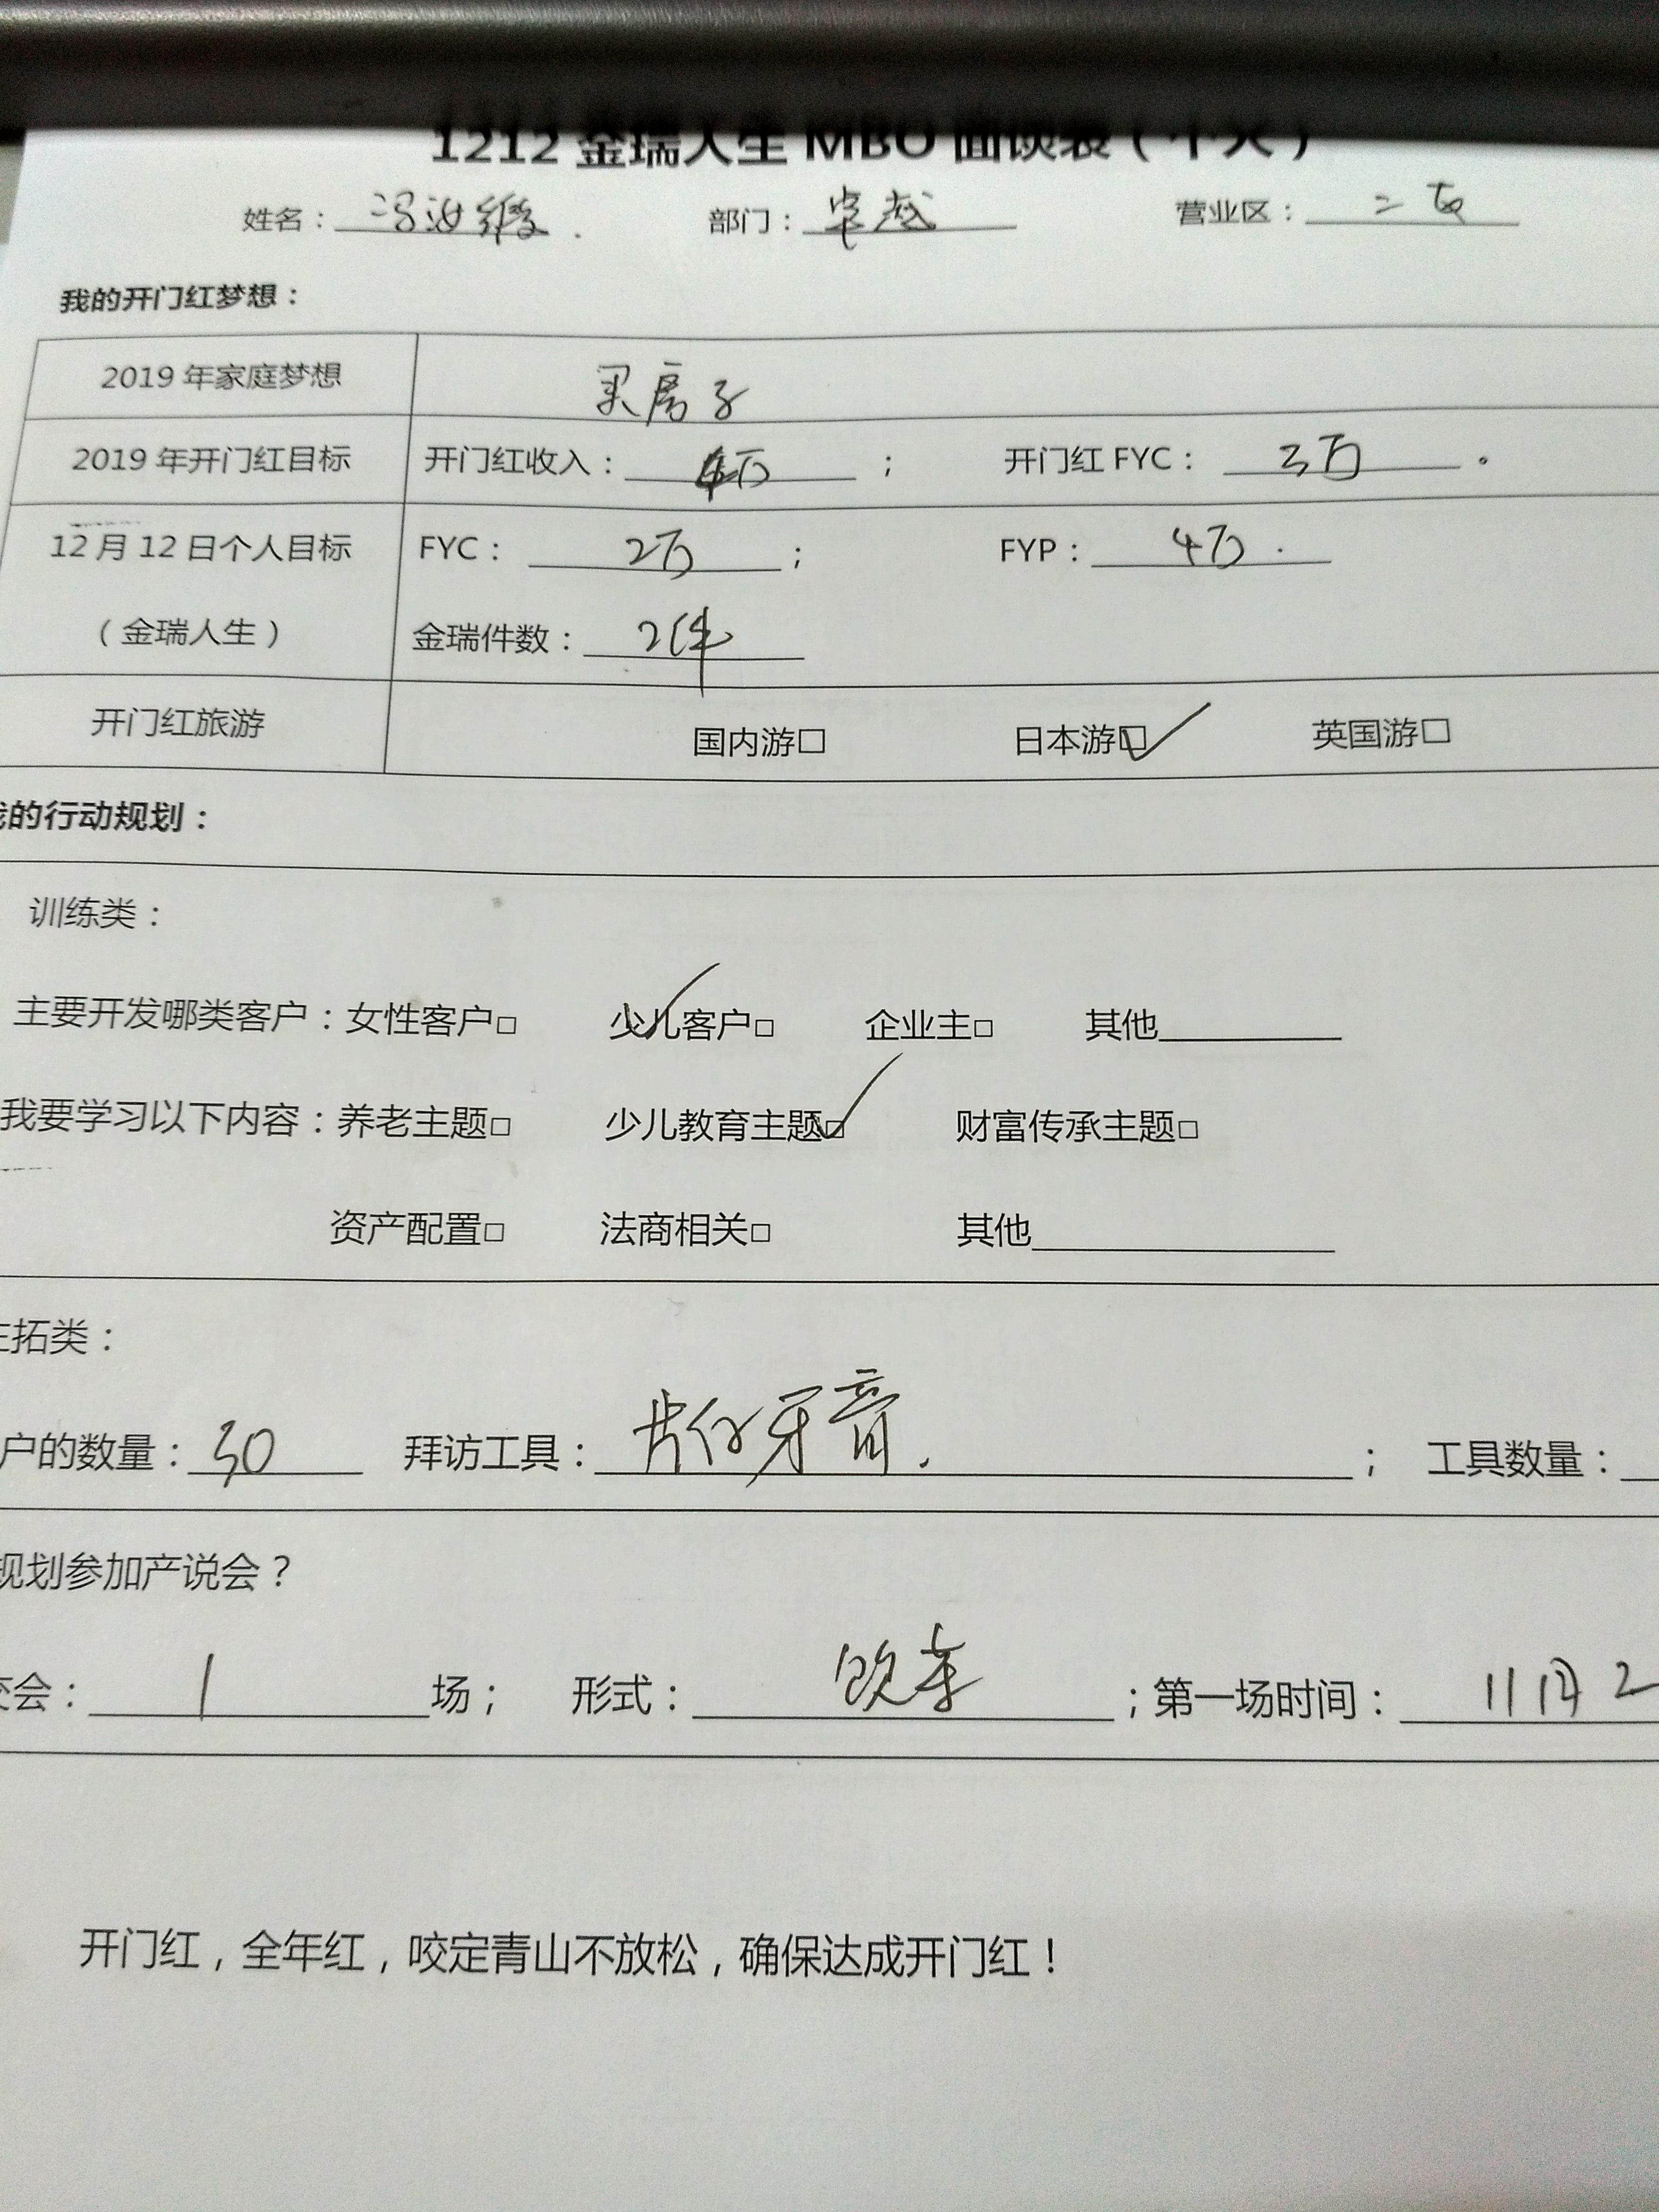 1212 金瑞人生 MBO 面谈表（个人）
姓名： 冯汝缎 . 部门：卓越 营业区：二区
我的开门红梦想：
2019 年家庭梦想 买房子
2019 年开门红目标 开门红收入：4万； 开门红 FYC：3万。
12 月 12 日个人目标 FYC：2万； FYP：4万.
（金瑞人生） 金瑞件数：2件
开门红旅游 国内游□ 日本游□✓ 英国游□
我的行动规划：
训练类：
主要开发哪类客户：女性客户□ 少儿客户□ ✓ 企业主□ 其他
我要学习以下内容：养老主题□ 少儿教育主题□✓ 财富传承主题□
资产配置□ 法商相关□ 其他
拓类：
户的数量：30 拜访工具： ； 工具数量：
规划参加产说会？
会：1场； 形式： ；第一场时间：11月2
开门红，全年红，咬定青山不放松，确保达成开门红！